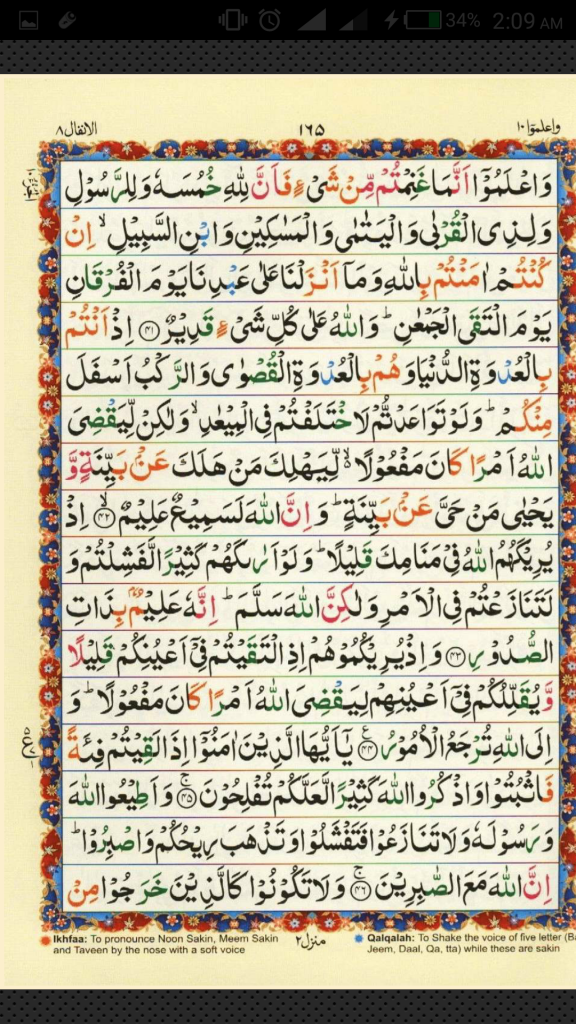 34% 2:09 AM
واعلموا ١٠
١٦٥
الانفال ٨
وَاعْلَمُوْۤا اَنَّمَا غَنِمْتُمْ مِّنْ شَیْءٍ فَاَنَّ لِلّٰهِ خُمُسَهٗ وَلِلرَّسُوْلِ
وَلِذِی الْقُرْبٰی وَالْیَتٰمٰی وَالْمَسٰكِیْنِ وَابْنِ السَّبِیْلِ ۙ اِنْ
كُنْتُمْ اٰمَنْتُمْ بِاللّٰهِ وَمَاۤ اَنْزَلْنَا عَلٰی عَبْدِنَا یَوْمَ الْفُرْقَانِ
یَوْمَ الْتَقَی الْجَمْعٰنِ ؕ وَاللّٰهُ عَلٰی كُلِّ شَیْءٍ قَدِیْرٌ ﴿۴۱﴾ اِذْ اَنْتُمْ
بِالْعُدْوَةِ الدُّنْیَا وَهُمْ بِالْعُدْوَةِ الْقُصْوٰی وَالرَّكْبُ اَسْفَلَ
مِنْكُمْ ؕ وَلَوْ تَوَاعَدْتُّمْ لَاخْتَلَفْتُمْ فِی الْمِیْعٰدِ ۙ وَلٰكِنْ لِّیَقْضِیَ
اللّٰهُ اَمْرًا كَانَ مَفْعُوْلًا ۙ۬ لِّیَهْلِكَ مَنْ هَلَكَ عَنْۢ بَیِّنَةٍ وَّ
یَحْیٰی مَنْ حَیَّ عَنْۢ بَیِّنَةٍ ؕ وَاِنَّ اللّٰهَ لَسَمِیْعٌ عَلِیْمٌ ﴿۴۲﴾ۙ اِذْ
یُرِیْكَهُمُ اللّٰهُ فِیْ مَنَامِكَ قَلِیْلًا ؕ وَلَوْ اَرٰىكَهُمْ كَثِیْرًا لَّفَشِلْتُمْ وَ
لَتَنَازَعْتُمْ فِی الْاَمْرِ وَلٰكِنَّ اللّٰهَ سَلَّمَ ؕ اِنَّهٗ عَلِیْمٌۢ بِذَاتِ
الصُّدُوْرِ ﴿۴۳﴾ وَاِذْ یُرِیْكُمُوْهُمْ اِذِ الْتَقَیْتُمْ فِیْۤ اَعْیُنِكُمْ قَلِیْلًا
وَّیُقَلِّلُكُمْ فِیْۤ اَعْیُنِهِمْ لِیَقْضِیَ اللّٰهُ اَمْرًا كَانَ مَفْعُوْلًا ؕ وَ
اِلَی اللّٰهِ تُرْجَعُ الْاُمُوْرُ ﴿۴۴﴾ یٰۤاَیُّهَا الَّذِیْنَ اٰمَنُوْۤا اِذَا لَقِیْتُمْ فِئَةً
فَاثْبُتُوْا وَاذْكُرُوا اللّٰهَ كَثِیْرًا لَّعَلَّكُمْ تُفْلِحُوْنَ ﴿۴۵﴾ۚ وَاَطِیْعُوا اللّٰهَ
وَرَسُوْلَهٗ وَلَا تَنَازَعُوْا فَتَفْشَلُوْا وَتَذْهَبَ رِیْحُكُمْ وَاصْبِرُوْا ؕ
اِنَّ اللّٰهَ مَعَ الصّٰبِرِیْنَ ﴿۴۶﴾ۚ وَلَا تَكُوْنُوْا كَالَّذِیْنَ خَرَجُوْا مِنْ
Ikhfaa: To pronounce Noon Sakin, Meem Sakin
and Taveen by the nose with a soft voice
منزل ٢
Qalqalah: To Shake the voice of five letter (Ba
Jeem, Daal, Qa, tta) while these are sakin